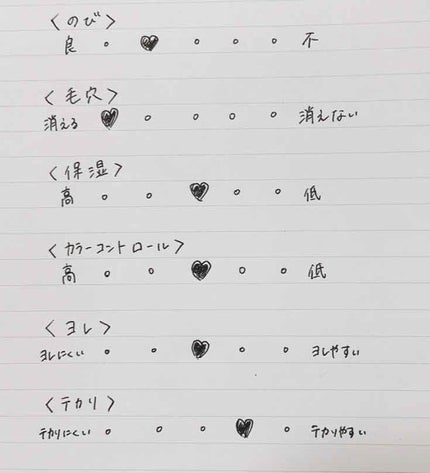 〈のび〉
良 ○ ♥ ○ ○ ○ 不
〈毛穴〉
消える ♥ ○ ○ ○ ○ 消えない
〈保湿〉
高 ○ ○ ♥ ○ ○ 低
〈カラーコントロール〉
高 ○ ○ ♥ ○ ○ 低
〈ヨレ〉
ヨレにくい ○ ○ ♥ ○ ○ ヨレやすい
〈テカリ〉
テカリにくい ○ ○ ○ ♥ ○ テカリやすい